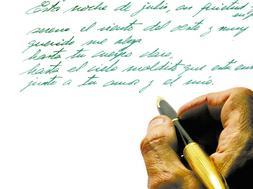 Esta noche de julio, en
sereno el viento del oeste y muy
querido me alega
hasta tu cuerpo claro,
hasta el cielo maldito que está
junto a tu amor y el mío.